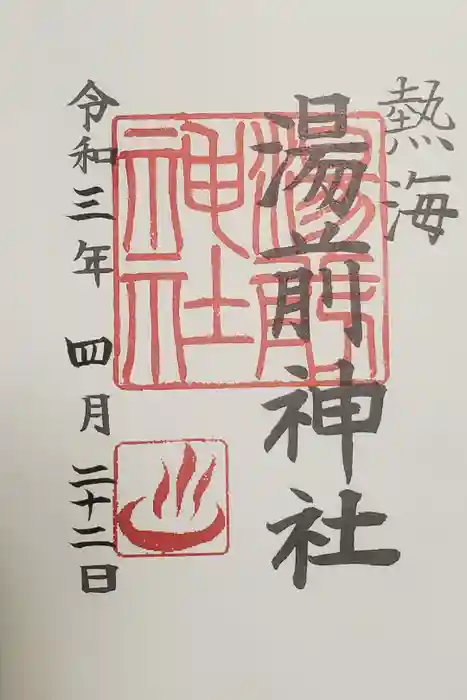 熱海
湯前神社
湯前
神社
令和三年 四月 二十二日